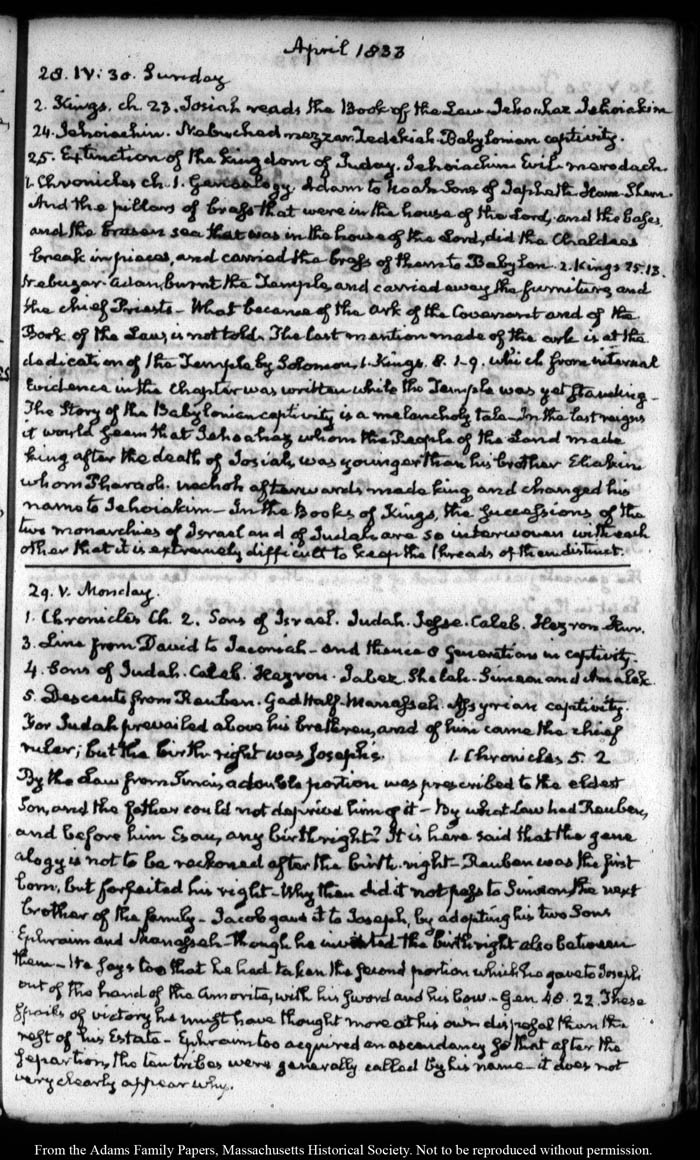 April 1833
28. IV: 30. Sunday
2. Kings. ch. 23. Josiah reads the Book of the Law Jehoahaz Jehoiakim
24. Jehoiachin. Nabuchadnezzar. Zedekiah. Babylonian captivity.
25. Extinction of the kingdom of Juday. Jehoiachin Evil-merodach.
1. Chronicles ch. 1. Genealogy. Adam to Noah. Sons of Japheth. Ham. Shem.
And the pillars of brass that were in the house of the Lord, and the bases,
and the brasen sea that was in the house of the Lord, did the Chaldees
break in pieces, and carried the brass of them to Babylon. 2. Kings 25. 13.
Nebuzar-adan, burnt the Temple, and carried away the furniture, and
the chief Priests – What became of the Ark of the Covenant and of the
Book of the Law, is not told. The last mention made of the ark is at the
dedication of the Temple by Solomon, 1. Kings. 8. 1-9. which from internal
Evidence in the Chapter was written while the Temple was yet standing –
The Story of the Babylonian captivity is a melancholy tale – In the last reigns
it would seem that Jehoahaz whom the People of the Land made
king after the death of Josiah, was younger than his brother Eliakim
whom Pharaoh-nechoh afterwards made king, and changed his
name to Jehoiakim – In the Books of Kings, the successions of the
two monarchies of Israel and of Judah are so interwoven with each
other that it is extremely difficult to keep the threads of them distinct.
29. V. Monday.
1. Chronicles Ch. 2. Sons of Israel. Judah. Jesse. Caleb. Hezron. Hur.
3. Line from David to Jeconiah – and thence generations in captivity.
4. Sons of Judah. Caleb. Hezron. Jabez. Shelah. Simeon and Amalek.
5. Descents from Reuben. Gad Half-Manasseh. Assyrian captivity.
For Judah prevailed above his brethren, and of him came the chief
ruler; but the birth-right was Joseph's. 1. Chronicles 5. 2
By the Law from Sinai, a double portion was prescribed to the eldest
Son, and the father could not deprive him of it – By what Law had Reuben,
and before him Esau, any birthright? It is here said that the gene
alogy is not to be reckoned after the birth-right – Reuben was the first
born, but forfeited his right – Why then did it not pass to Simeon, the next
brother of the family – Jacob gave it to Joseph, by adopting his two Sons
Ephraim and Manasseh – though he the birthright also between
them – He says too that he had taken the second portion which he gave to Joseph
out of the hand of the Amorite, with his sword and his bow. – Gen. 48. 22. These
spoils of victory he might have thought more at his own disposal than the
rest of his Estate – Ephraim too acquired an ascendancy so that after the
separation, the ten tribes were generally called by his name – it does not
very clearly appear why.
From the Adams Family Papers, Massachusetts Historical Society. Not to be reproduced without permission.